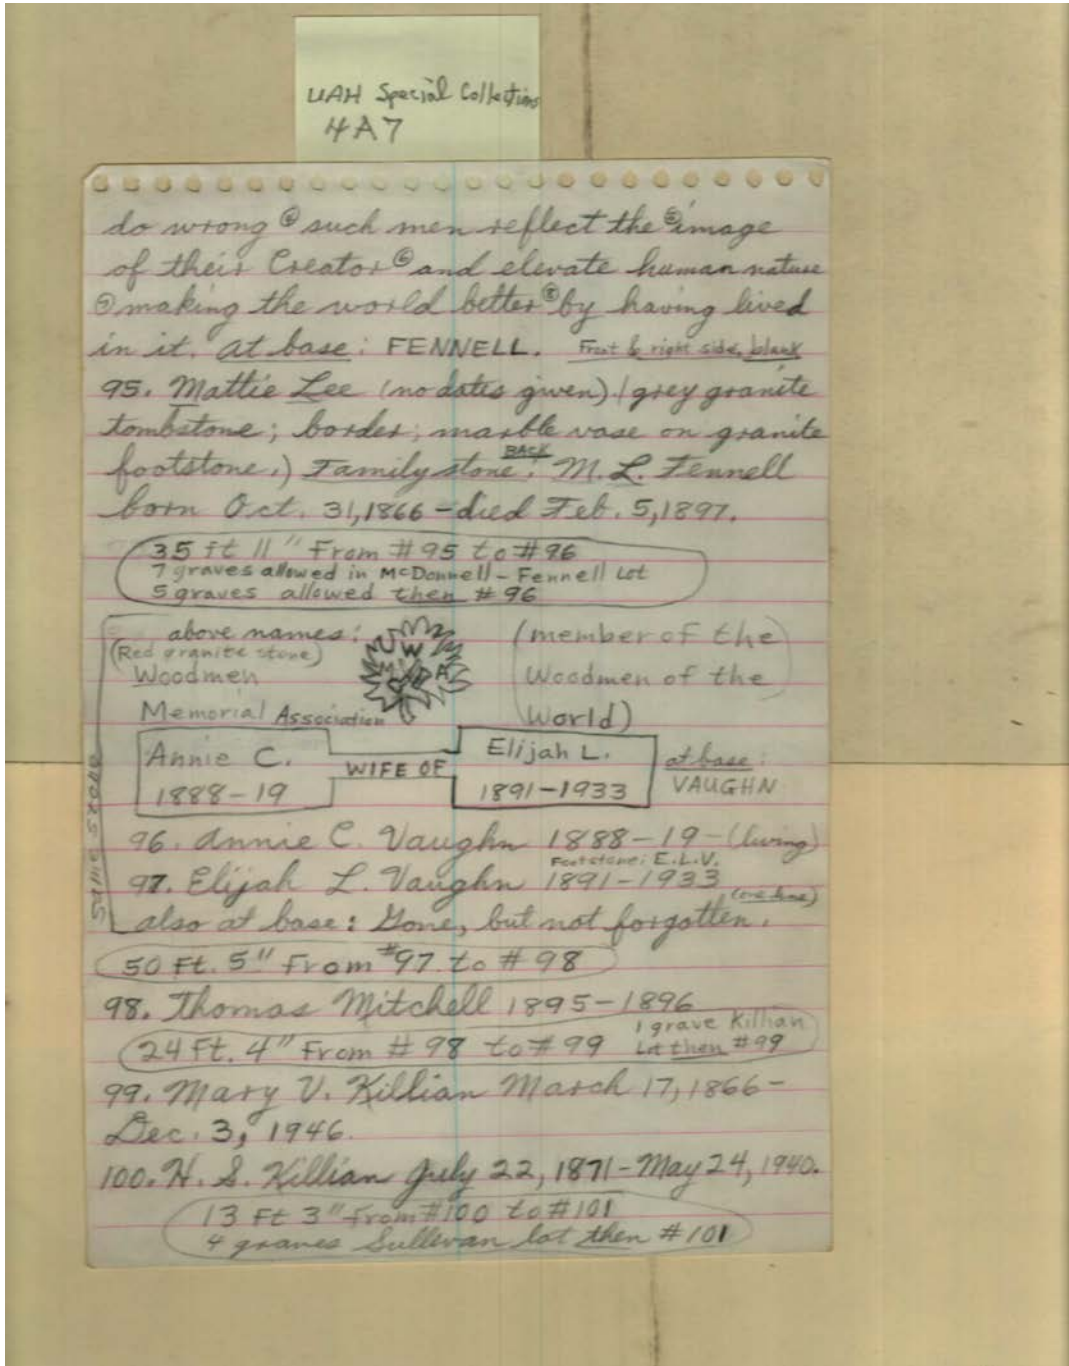 UAH Special Collections
4A7
do wrong ④ such men reflect the ⑤ image
of their Creator ⑥ and elevate human nature
⑦ making the world better ⑧ by having lived
in it. at base: FENNELL. Front & right side, blank
95. Mattie Lee (no dates given). (grey granite
tombstone; border; marble vase on granite
footstone.) Family stone BACK: M. L. Fennell
born Oct. 31, 1866 – died Feb. 5, 1897.
35 ft 11" From #95 to #96
7 graves allowed in McDonnell – Fennell Lot
5 graves allowed then #96
above names:
(Red granite stone)
Woodmen
Memorial Association
W
M A
(member of the
Woodmen of the
World)
same stone
Annie C.
1888–19
WIFE OF
Elijah L.
1891–1933
at base:
VAUGHN
96. Annie C. Vaughn 1888–19– (living)
Footstone: E.L.V.
97. Elijah L. Vaughn 1891–1933
(one line)
also at base: Gone, but not forgotten.
50 Ft. 5" From #97 to #98
98. Thomas Mitchell 1895–1896
24 Ft. 4" From #98 to #99
1 grave Killian
Lot then #99
99. Mary V. Killian March 17, 1866–
Dec. 3, 1946.
100. H. S. Killian July 22, 1871–May 24, 1940.
13 Ft 3" From #100 to #101
4 graves Sullivan lot then #101